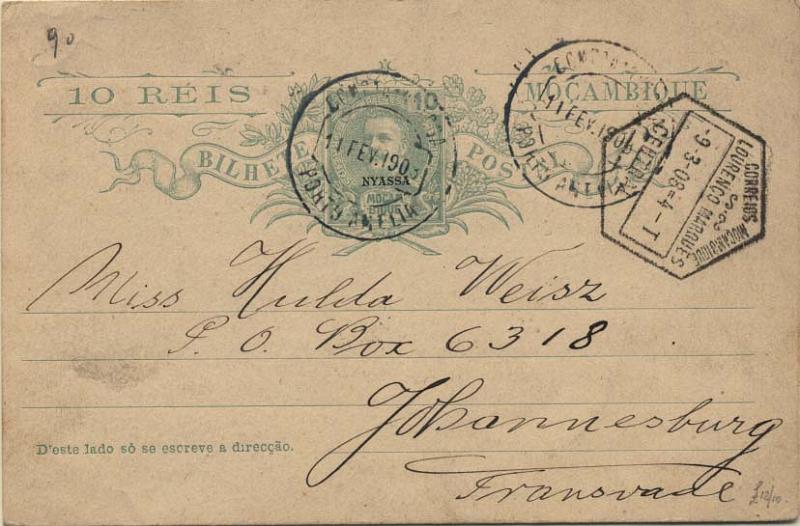 90
10 RÉIS MOÇAMBIQUE
BILHETE POSTAL
10
NYASSA
MOÇAMBIQUE
11 FEV. 1903
PORTO AMELIA
11 FEV. 190
PORTO AMELIA
CORREIOS MOÇAMBIQUE
LOURENÇO MARQUES
-9-3-08=4-T
CENTRAL
Miss Hulda Weisz
P. O. Box 6318
Johannesburg
Transvaal
D'este lado só se escreve a direcção.
£12/10